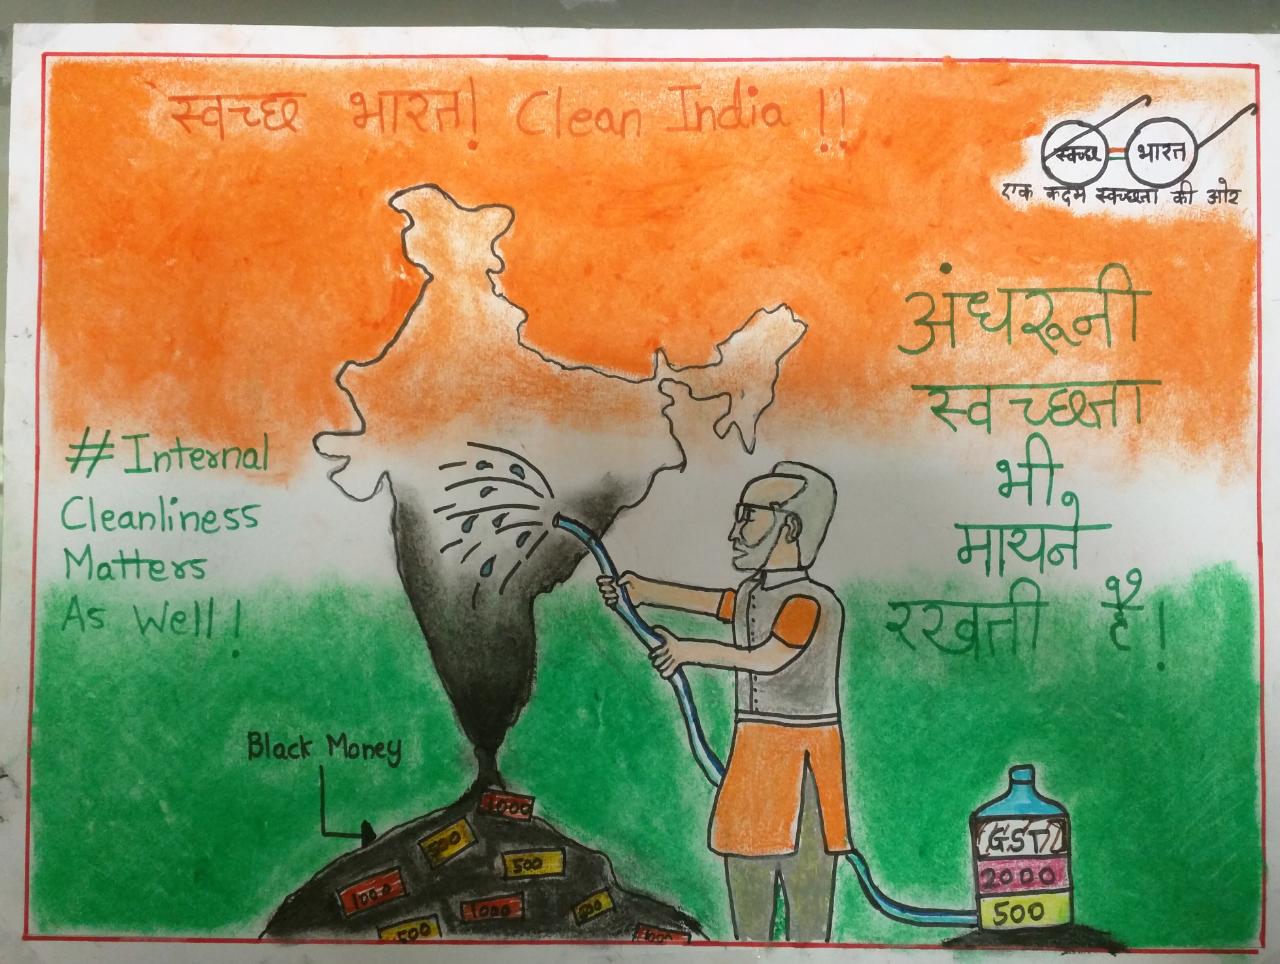 स्वच्छ भारत! Clean India !!
स्वच्छ भारत
एक कदम स्वच्छता की ओर
अंधरूनी
स्वच्छता
भी
मायने
रखती है!
#Internal
Cleanliness
Matters
As Well!
Black Money
1000
500
500
1000
1000
500
500
1000
GST
2000
500